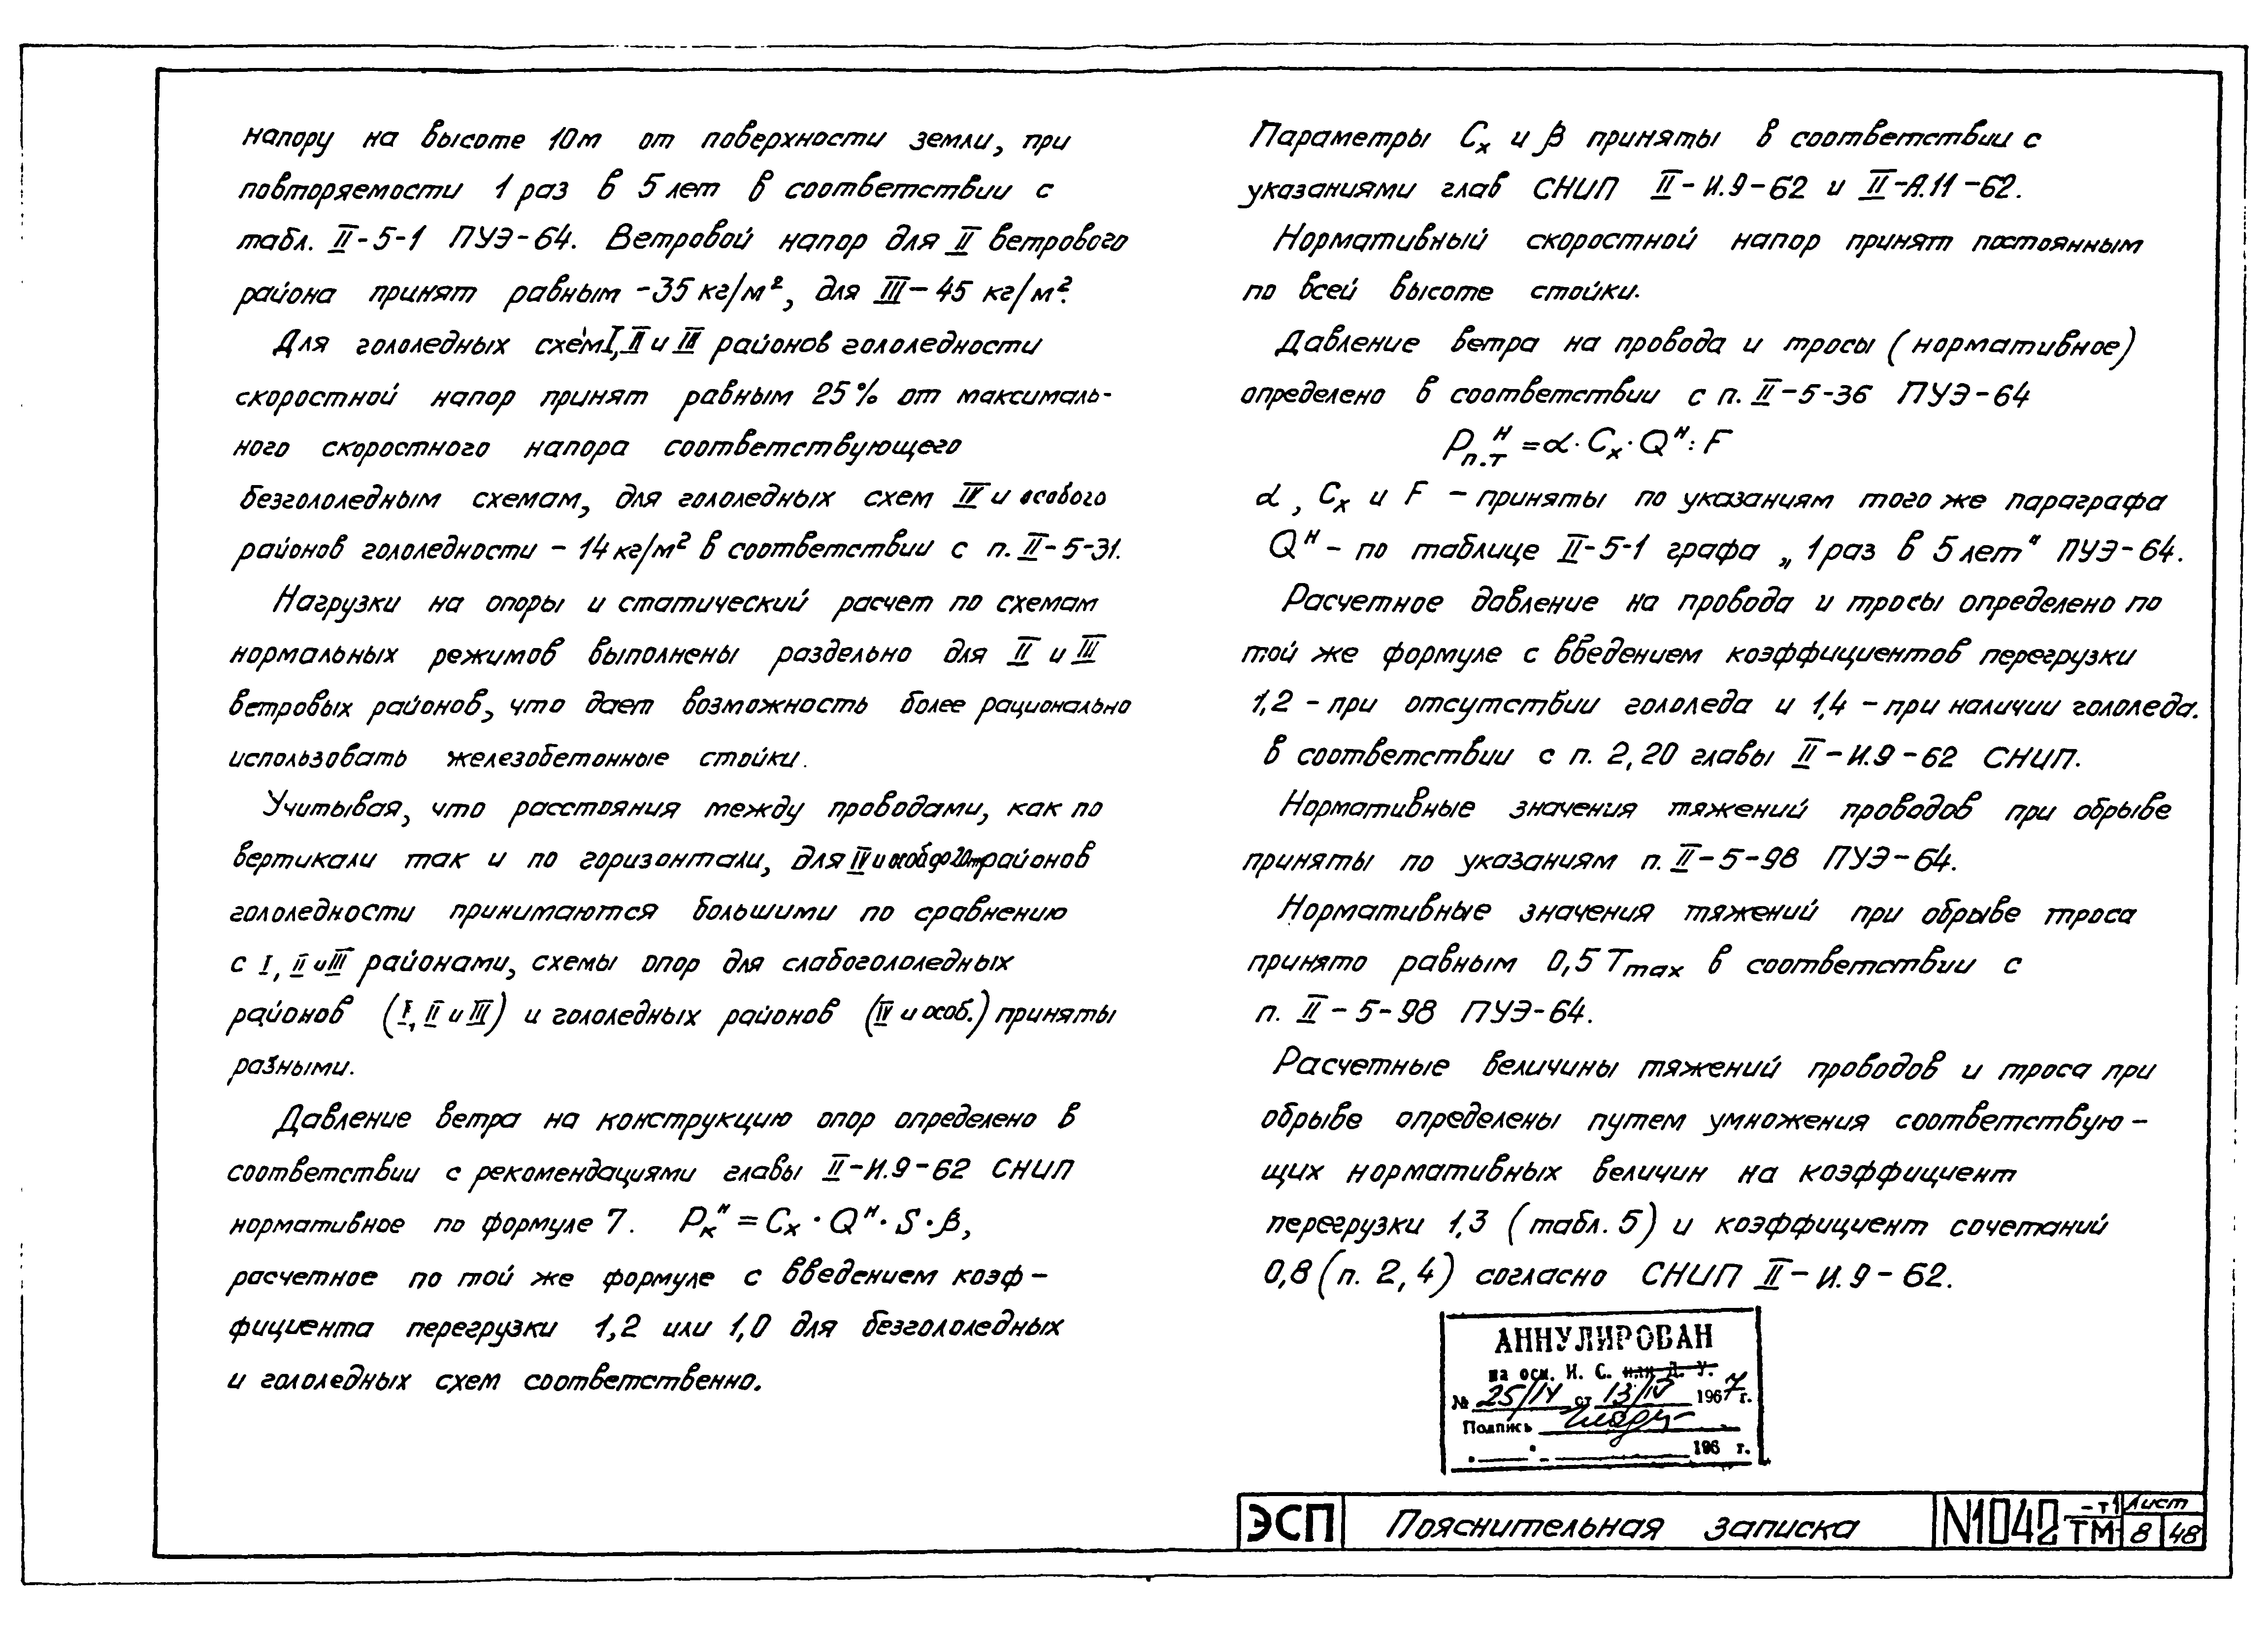 напору на высоте 10м от поверхности земли, при
повторяемости 1 раз в 5 лет в соответствии с
табл. II-5-1 ПУЭ-64. Ветровой напор для II ветрового
района принят равным -35 кг/м², для III - 45 кг/м².
Для гололедных схем I, II и III районов гололедности
скоростной напор принят равным 25% от максималь-
ного скоростного напора соответствующего
безгололедным схемам, для гололедных схем IV и особого
районов гололедности - 14 кг/м² в соответствии с п. II-5-31.
Нагрузки на опоры и статический расчет по схемам
нормальных режимов выполнены раздельно для II и III
ветровых районов, что дает возможность более рационально
использовать железобетонные стойки.
Учитывая, что расстояния между проводами, как по
вертикали так и по горизонтали, для IV и особ. районов
гололедности принимаются большими по сравнению
с I, II и III районами, схемы опор для слабогололедных
районов (I, II и III) и гололедных районов (IV и особ.) приняты
разными.
Давление ветра на конструкцию опор определено в
соответствии с рекомендациями главы II-И.9-62 СНИП
нормативное по формуле 7. Pкᴴ = Cx · Qᴴ · S · β,
расчетное по той же формуле с введением коэф-
фициента перегрузки 1,2 или 1,0 для безгололедных
и гололедных схем соответственно.
Параметры Cx и β приняты в соответствии с
указаниями глав СНИП II-И.9-62 и II-А.11-62.
Нормативный скоростной напор принят постоянным
по всей высоте стойки.
Давление ветра на провода и тросы (нормативное)
определено в соответствии с п. II-5-36 ПУЭ-64
Pп.тᴴ = α · Cx · Qᴴ · F
α, Cx и F - приняты по указаниям того же параграфа
Qᴴ - по таблице II-5-1 графа „1 раз в 5 лет" ПУЭ-64.
Расчетное давление на провода и тросы определено по
той же формуле с введением коэффициентов перегрузки
1,2 - при отсутствии гололеда и 1,4 - при наличии гололеда.
в соответствии с п. 2,20 главы II-И.9-62 СНИП.
Нормативные значения тяжений проводов при обрыве
приняты по указаниям п. II-5-98 ПУЭ-64.
Нормативные значения тяжений при обрыве троса
принято равным 0,5 Tmax в соответствии с
п. II-5-98 ПУЭ-64.
Расчетные величины тяжений проводов и троса при
обрыве определены путем умножения соответствую-
щих нормативных величин на коэффициент
перегрузки 1,3 (табл. 5) и коэффициент сочетаний
0,8 (п. 2,4) согласно СНИП II-И.9-62.
АННУЛИРОВАН
на осн. И. С. или Д. У.
№ 25/IV от 13/IV 1967 г.
Подпись
196 г.
ЭСП Пояснительная записка N1042 -т1 ТМ Лист 8 48